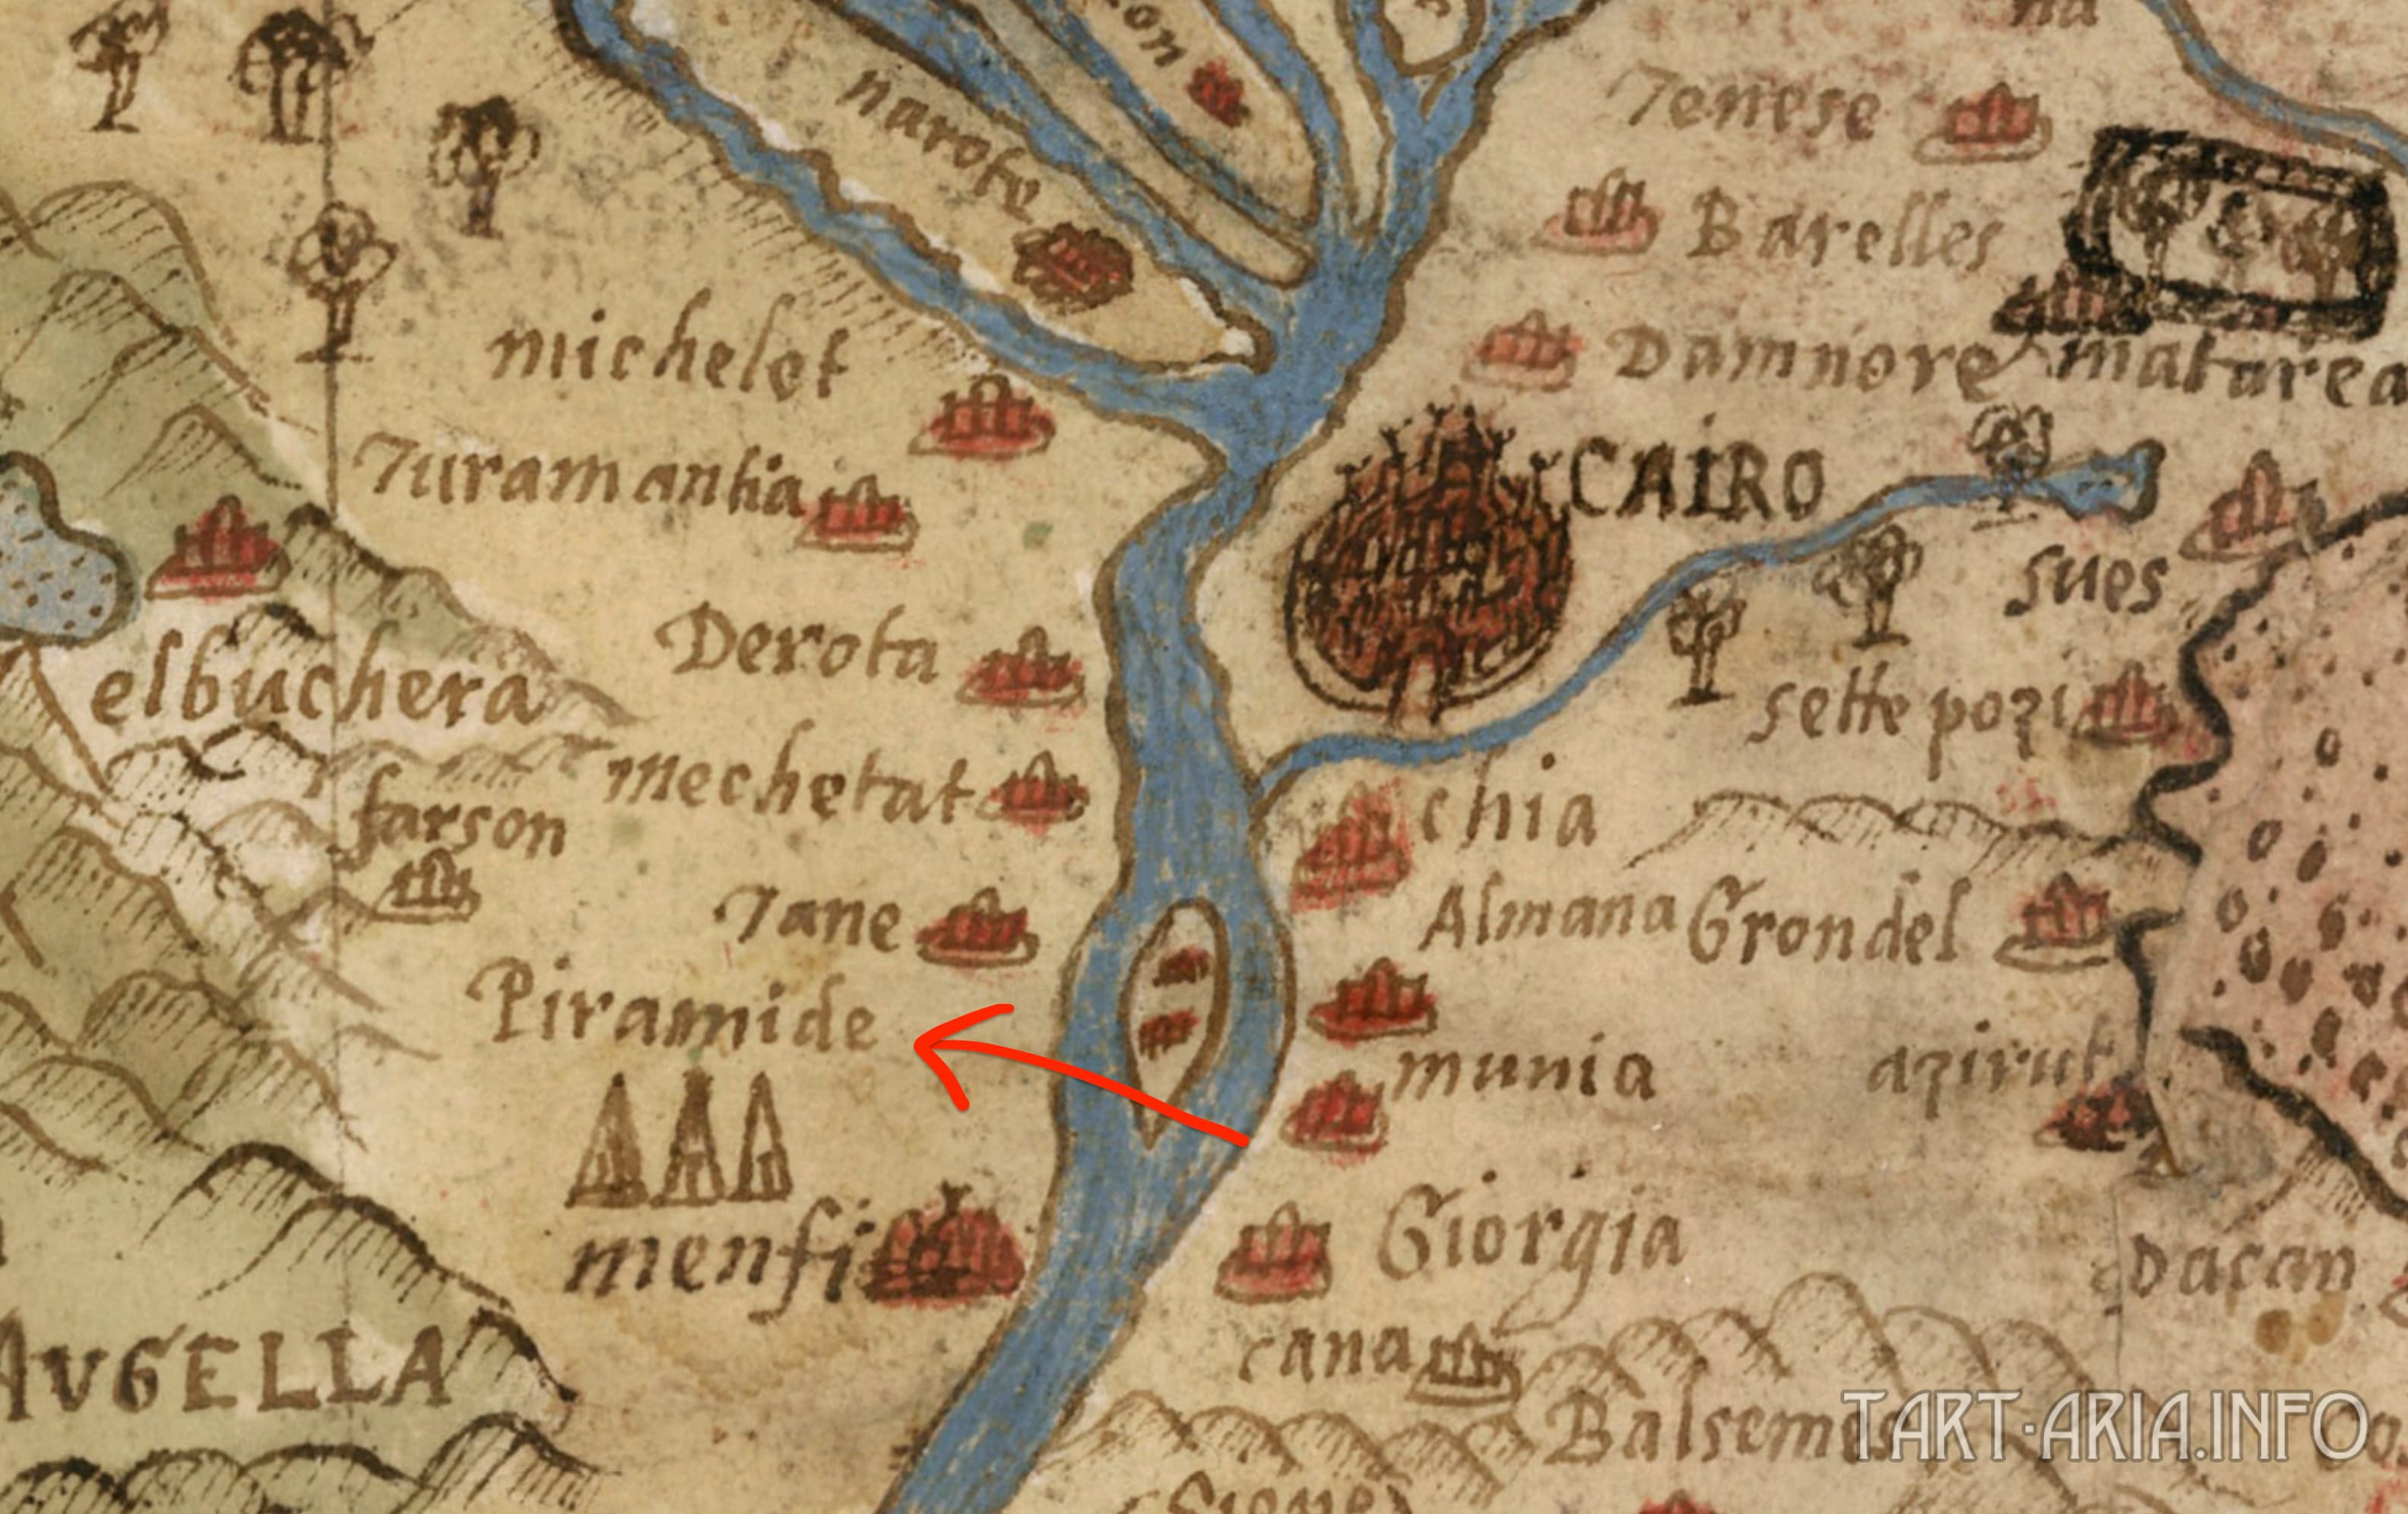 Tenese
narofe
Barelles
michelet
Damnore
matarea
Turamantia
CAIRO
sues
Derota
elbuchera
sette pozi
mechetat
farson
chia
Tane
Almana
Grondel
Piramide
munia
azirut
menfi
Giorgia
Dacan
cana
AVGELLA
Balsemes
TART-ARIA.INFO